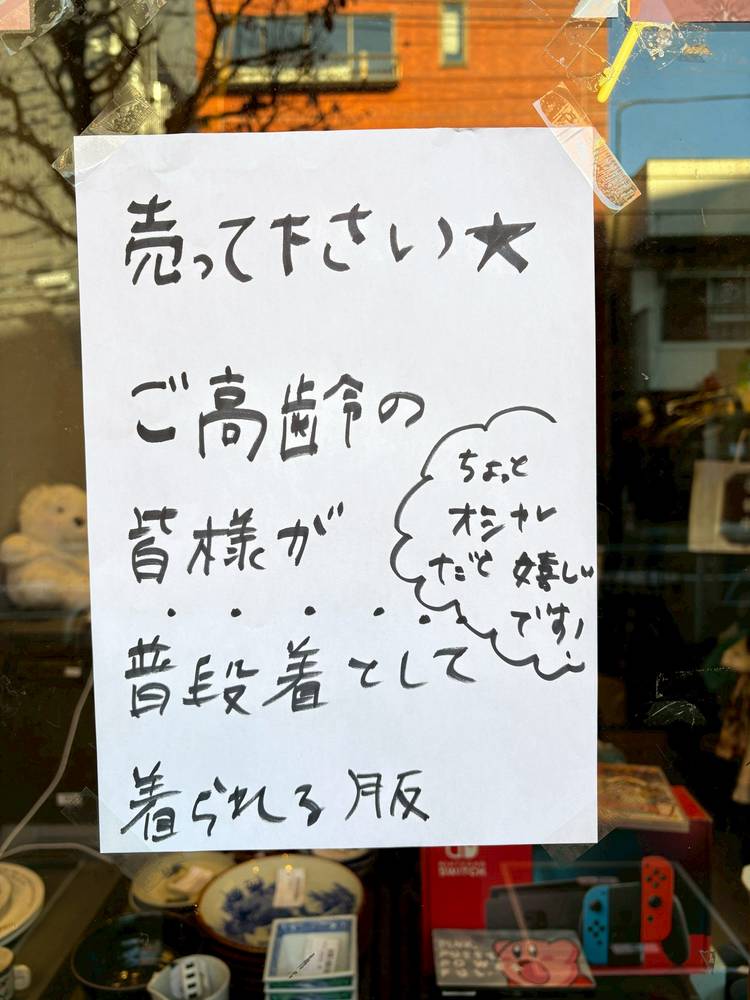 売って下さい★
ご高齢の
皆様が
普段着として
着られる服
ちょっと
オシャレ
だと嬉しい
です!
SWITCH